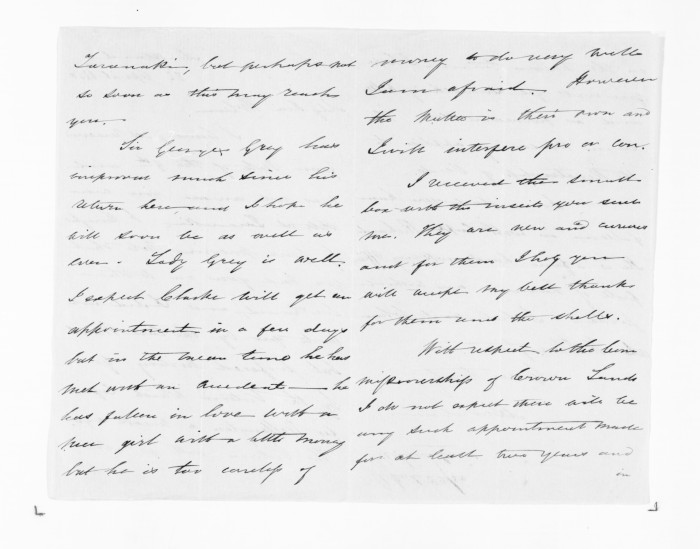 Taranaki, but perhaps not
so soon as this may reach
you.
Sir George Grey has
improved much since his
return here and I hope he
will soon be as well as
ever. Lady Grey is well.
I expect Clarke will get an
appointment in a few days
but in the mean time he has
met with an accident — he
has fallen in love with a
nice girl with a little money
but he is too careless of
money to do very well
I am afraid. However
the matter is their own and
I will interfere pro or con.
I received the small
box with the insects you sent
me. They are new and curious
and for them I hope you
will accept my best thanks
for them and the shells.
With respect to the Com
missionership of Crown Lands
I do not expect there will be
any such appointment made
for at least two years and
in